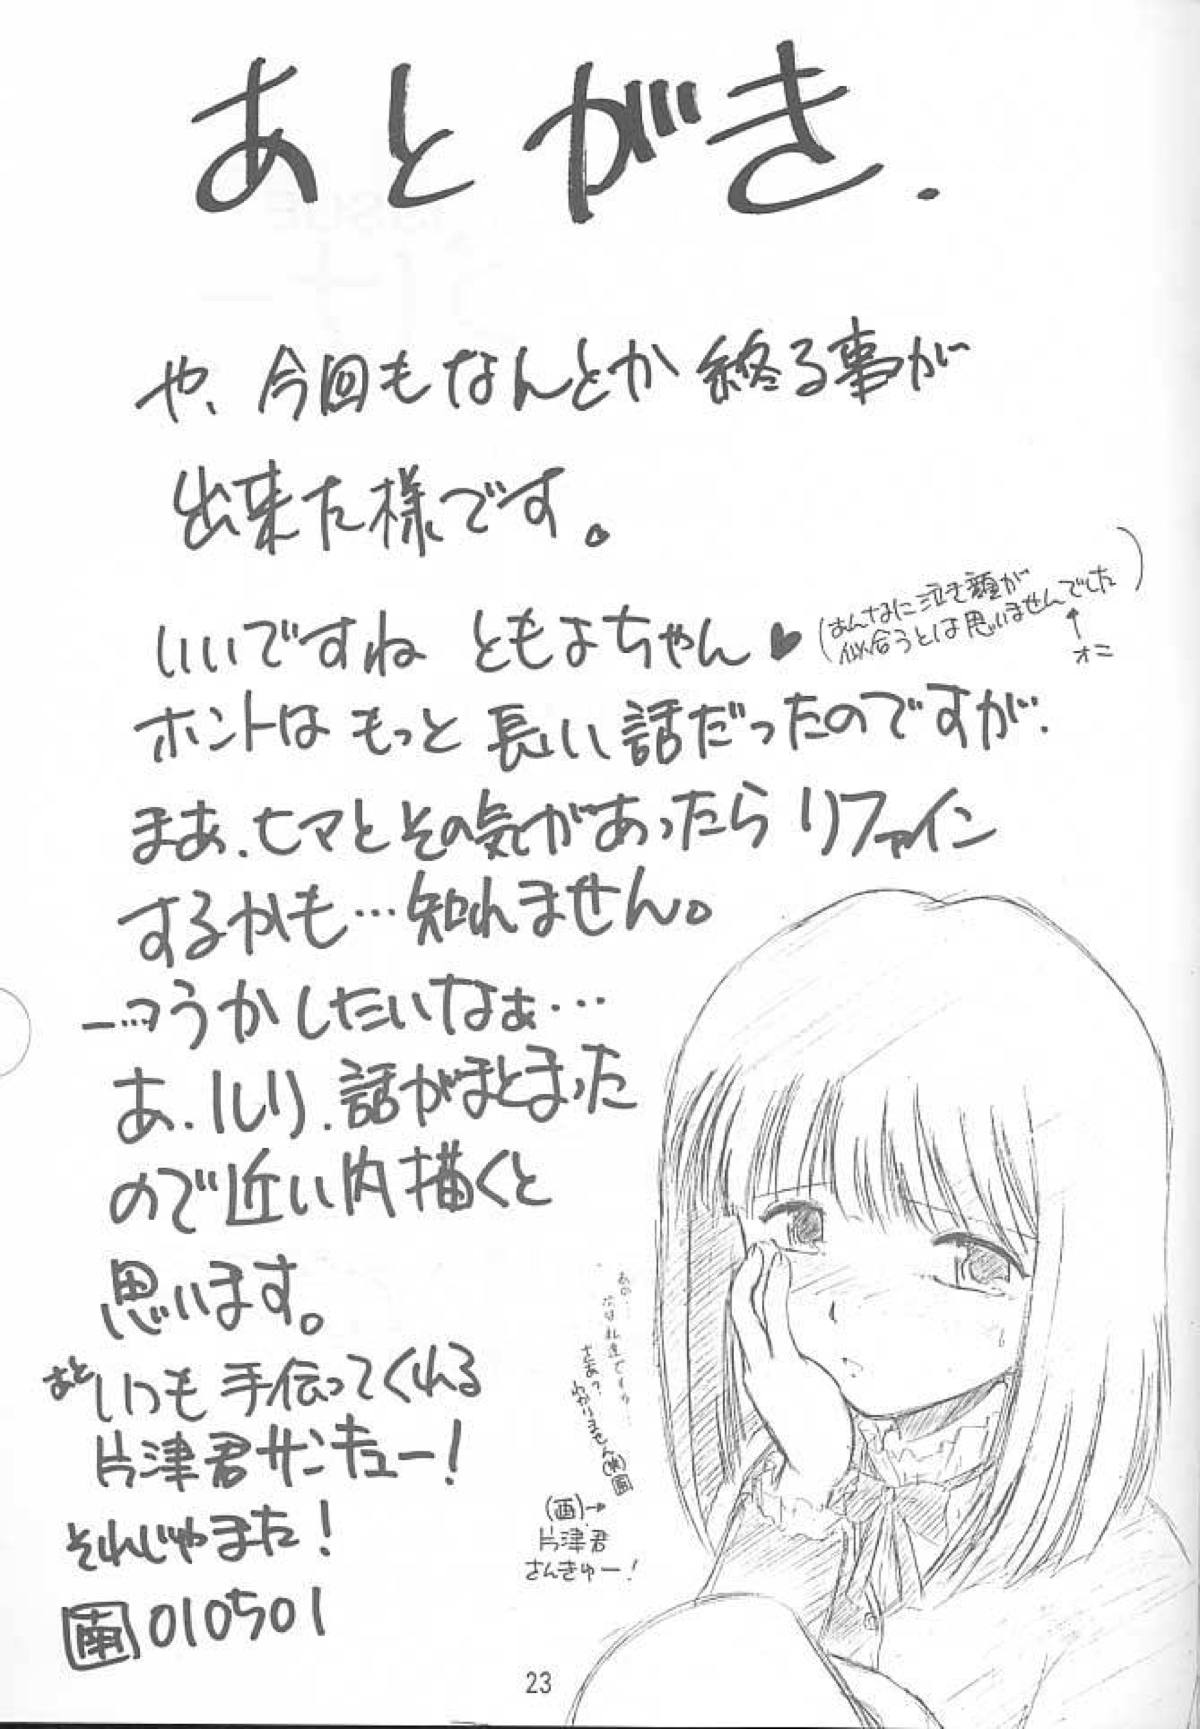 あとがき.
や、今回もなんとか終る事が
出来た様です。
いいですね ともよちゃん♥
(あんなに泣き顔が
似合うとは思いませんでした)
↑
オニ
ホントは もっと 長い話だったのですが.
まあ、ヒマとその気があったら リファイン
するかも…知れません。
…つうかしたいなぁ…
あ、ルリ、話がまとまった
ので近い内描くと
思います。
あといつも 手伝ってくれる
片津君サンキュー!
それじゃまた!
010501
あの…
次は私達ですか…
さぁ?
わかりません(笑)
(画)→
片津君
さんきゅー!
23